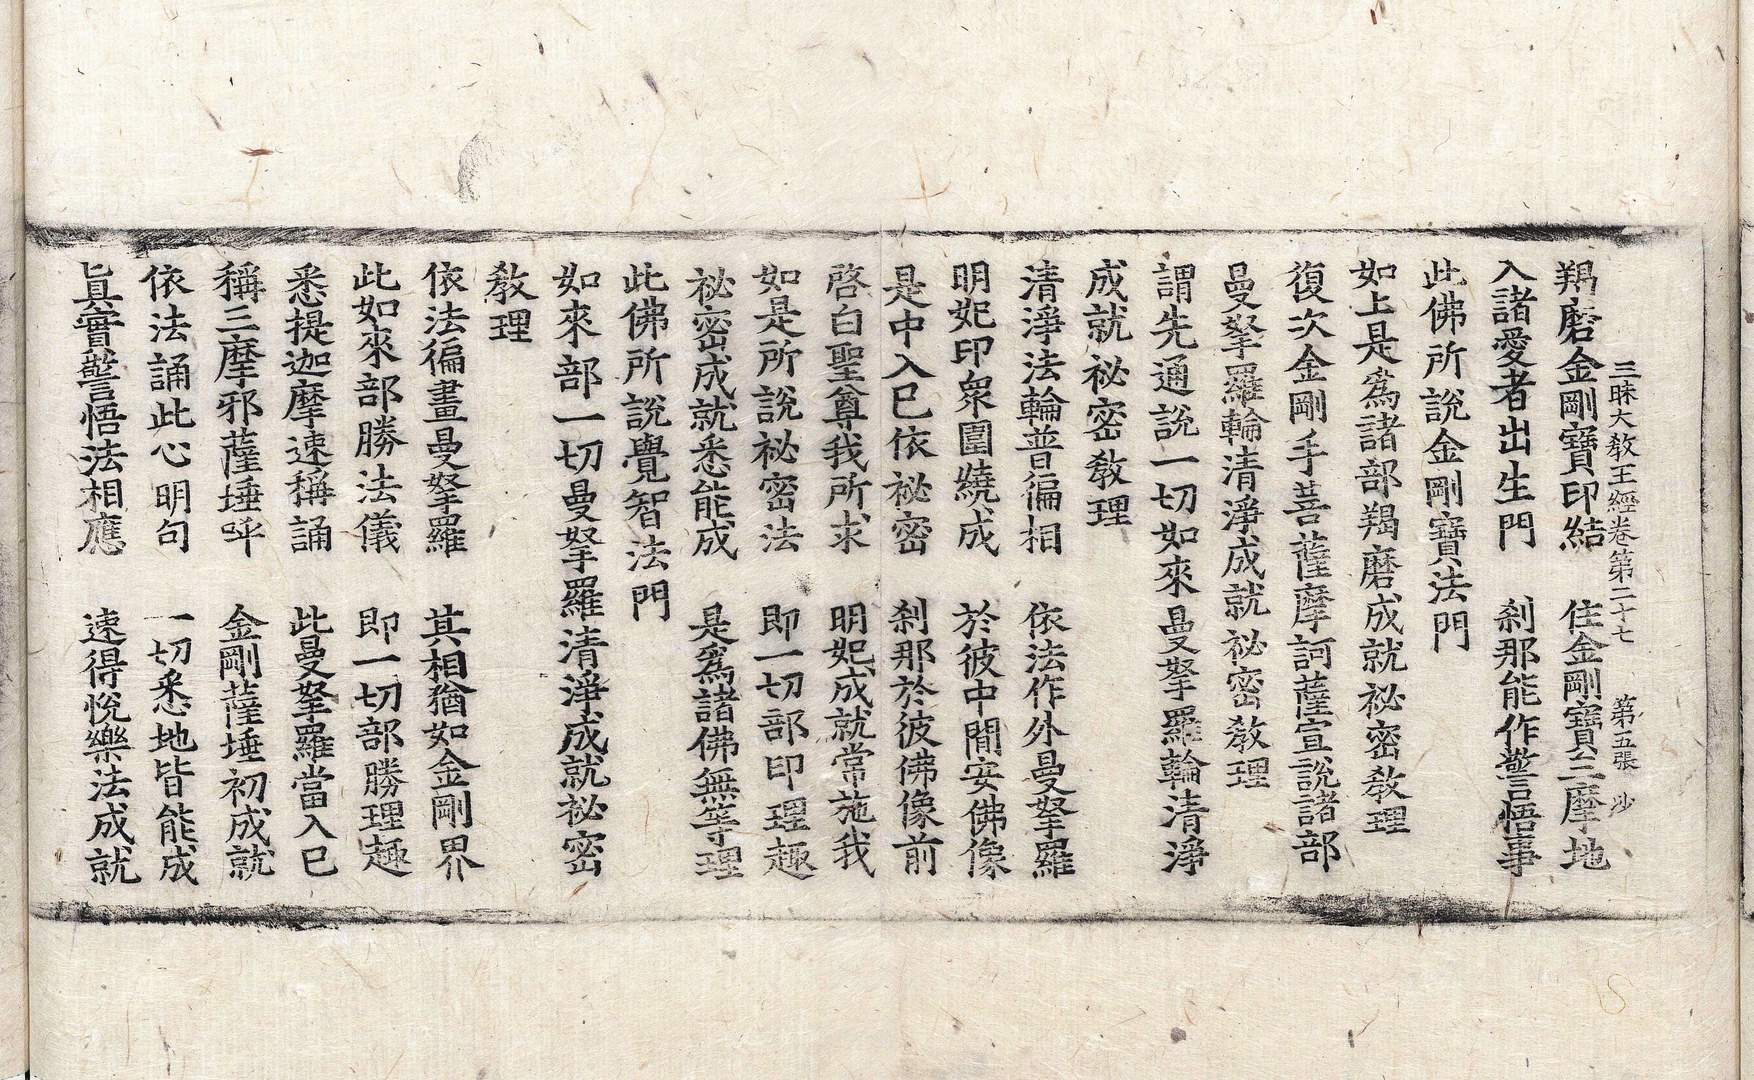 三昧大教王經卷第二十七　第五張　沙
羯磨金剛寶印結　住金剛寶三摩地
入諸愛者出生門　刹那能作警悟事
此佛所說金剛寶法門
如上是爲諸部羯磨成就祕密敎理
復次金剛手菩薩摩訶薩宣說諸部
曼拏羅輪清淨成就祕密敎理
謂先通說一切如來曼拏羅輪清淨
成就祕密敎理
清淨法輪普徧相　依法作外曼拏羅
明妃印衆圍繞成　於彼中閒安佛像
是中入已依祕密　刹那於彼佛像前
啓白聖尊我所求　明妃成就常施我
如是所說祕密法　即一切部印理趣
祕密成就悉能成　是爲諸佛無等理
此佛所說覺智法門
如來部一切曼拏羅清淨成就祕密
敎理
依法徧畫曼拏羅　其相猶如金剛界
此如來部勝法儀　即一切部勝理趣
悉提迦摩速稱誦　此曼拏羅當入已
稱三摩邪薩埵呼　金剛薩埵初成就
依法誦此心明句　一切悉地皆能成
眞實警悟法相應　速得悅樂法成就